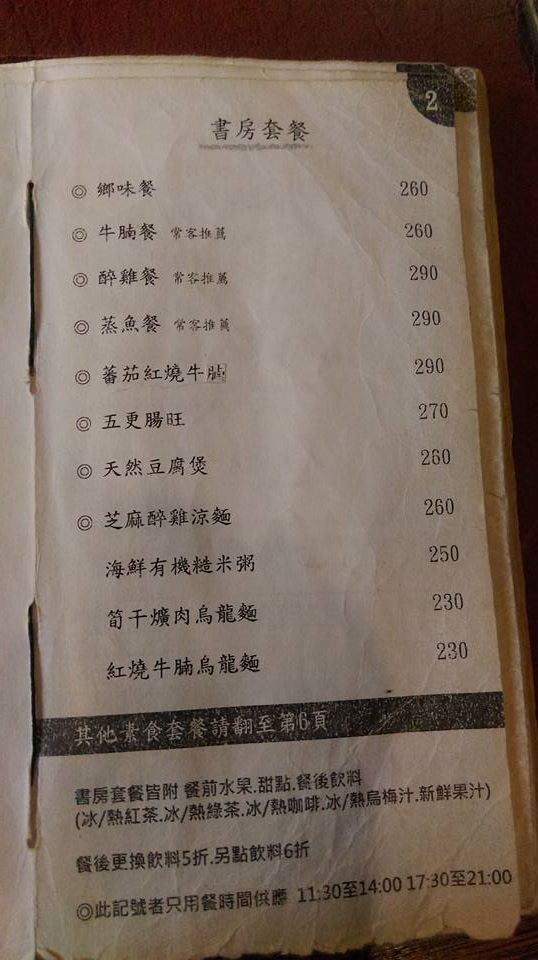 2
書房套餐
◎ 鄉味餐 260
◎ 牛腩餐 常客推薦 260
◎ 醉雞餐 常客推薦 290
◎ 蒸魚餐 常客推薦 290
◎ 蕃茄紅燒牛腩 290
◎ 五更腸旺 270
◎ 天然豆腐煲 260
◎ 芝麻醉雞涼麵 260
海鮮有機糙米粥 250
筍干爌肉烏龍麵 230
紅燒牛腩烏龍麵 230
其他素食套餐請翻至第6頁
書房套餐皆附 餐前水果.甜點.餐後飲料
(冰/熱紅茶.冰/熱綠茶.冰/熱咖啡.冰/熱烏梅汁.新鮮果汁)
餐後更換飲料5折.另點飲料6折
◎此記號者只用餐時間供應 11:30至14:00 17:30至21:00